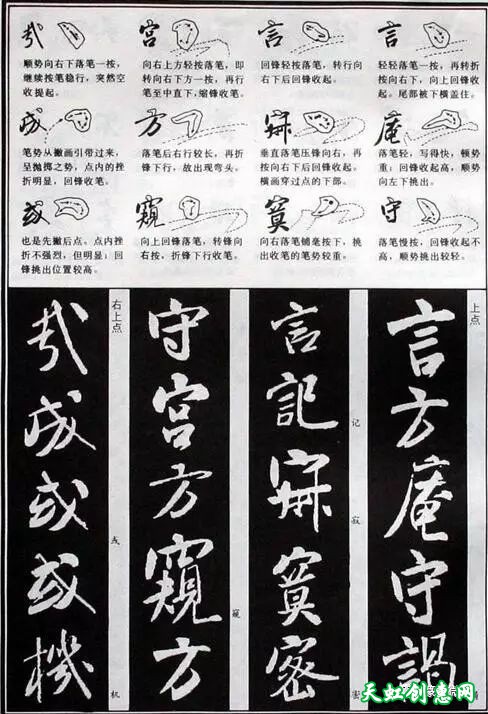 哉
宫
言
言
顺势向右下落笔一按,
继续按笔稳行,突然空
收提起。
向右上方轻按落笔,即
转向右上方一按,再行
笔至中直下,缩锋收笔。
回锋轻按落笔,转行向
右下后回锋收起。
轻轻落笔一按,再转折
按向右下,向上回锋收
起。尾部被下横盖住。
成
方
寂
庵
笔势从撇画引带过来,
呈抛掷之势,点内的挫
折明显,回锋收笔。
落笔后右行较长,再折
锋下行,故出现弯头。
垂直落笔压锋向右,再
按向右下后回锋收起。
横画穿过点的下部。
落笔轻,写得快,顿势
重;回锋收起高,顺势
向左下挑出。
或
窺
寞
守
也是先撇后点。点内挫
折不强烈,但明显;回
锋挑出位置较高。
向上回锋落笔,转锋向
右按,折锋下行收笔。
向右落笔铺毫按下,挑
出收笔的笔势较重。
落笔慢按,回锋收起不
高,顺势挑出较轻。
上点
言方庵守
言記寂寞密
记
寂
密
守宫方窺方
窥
右上点
哉成或或機
或
机
天虹创意网